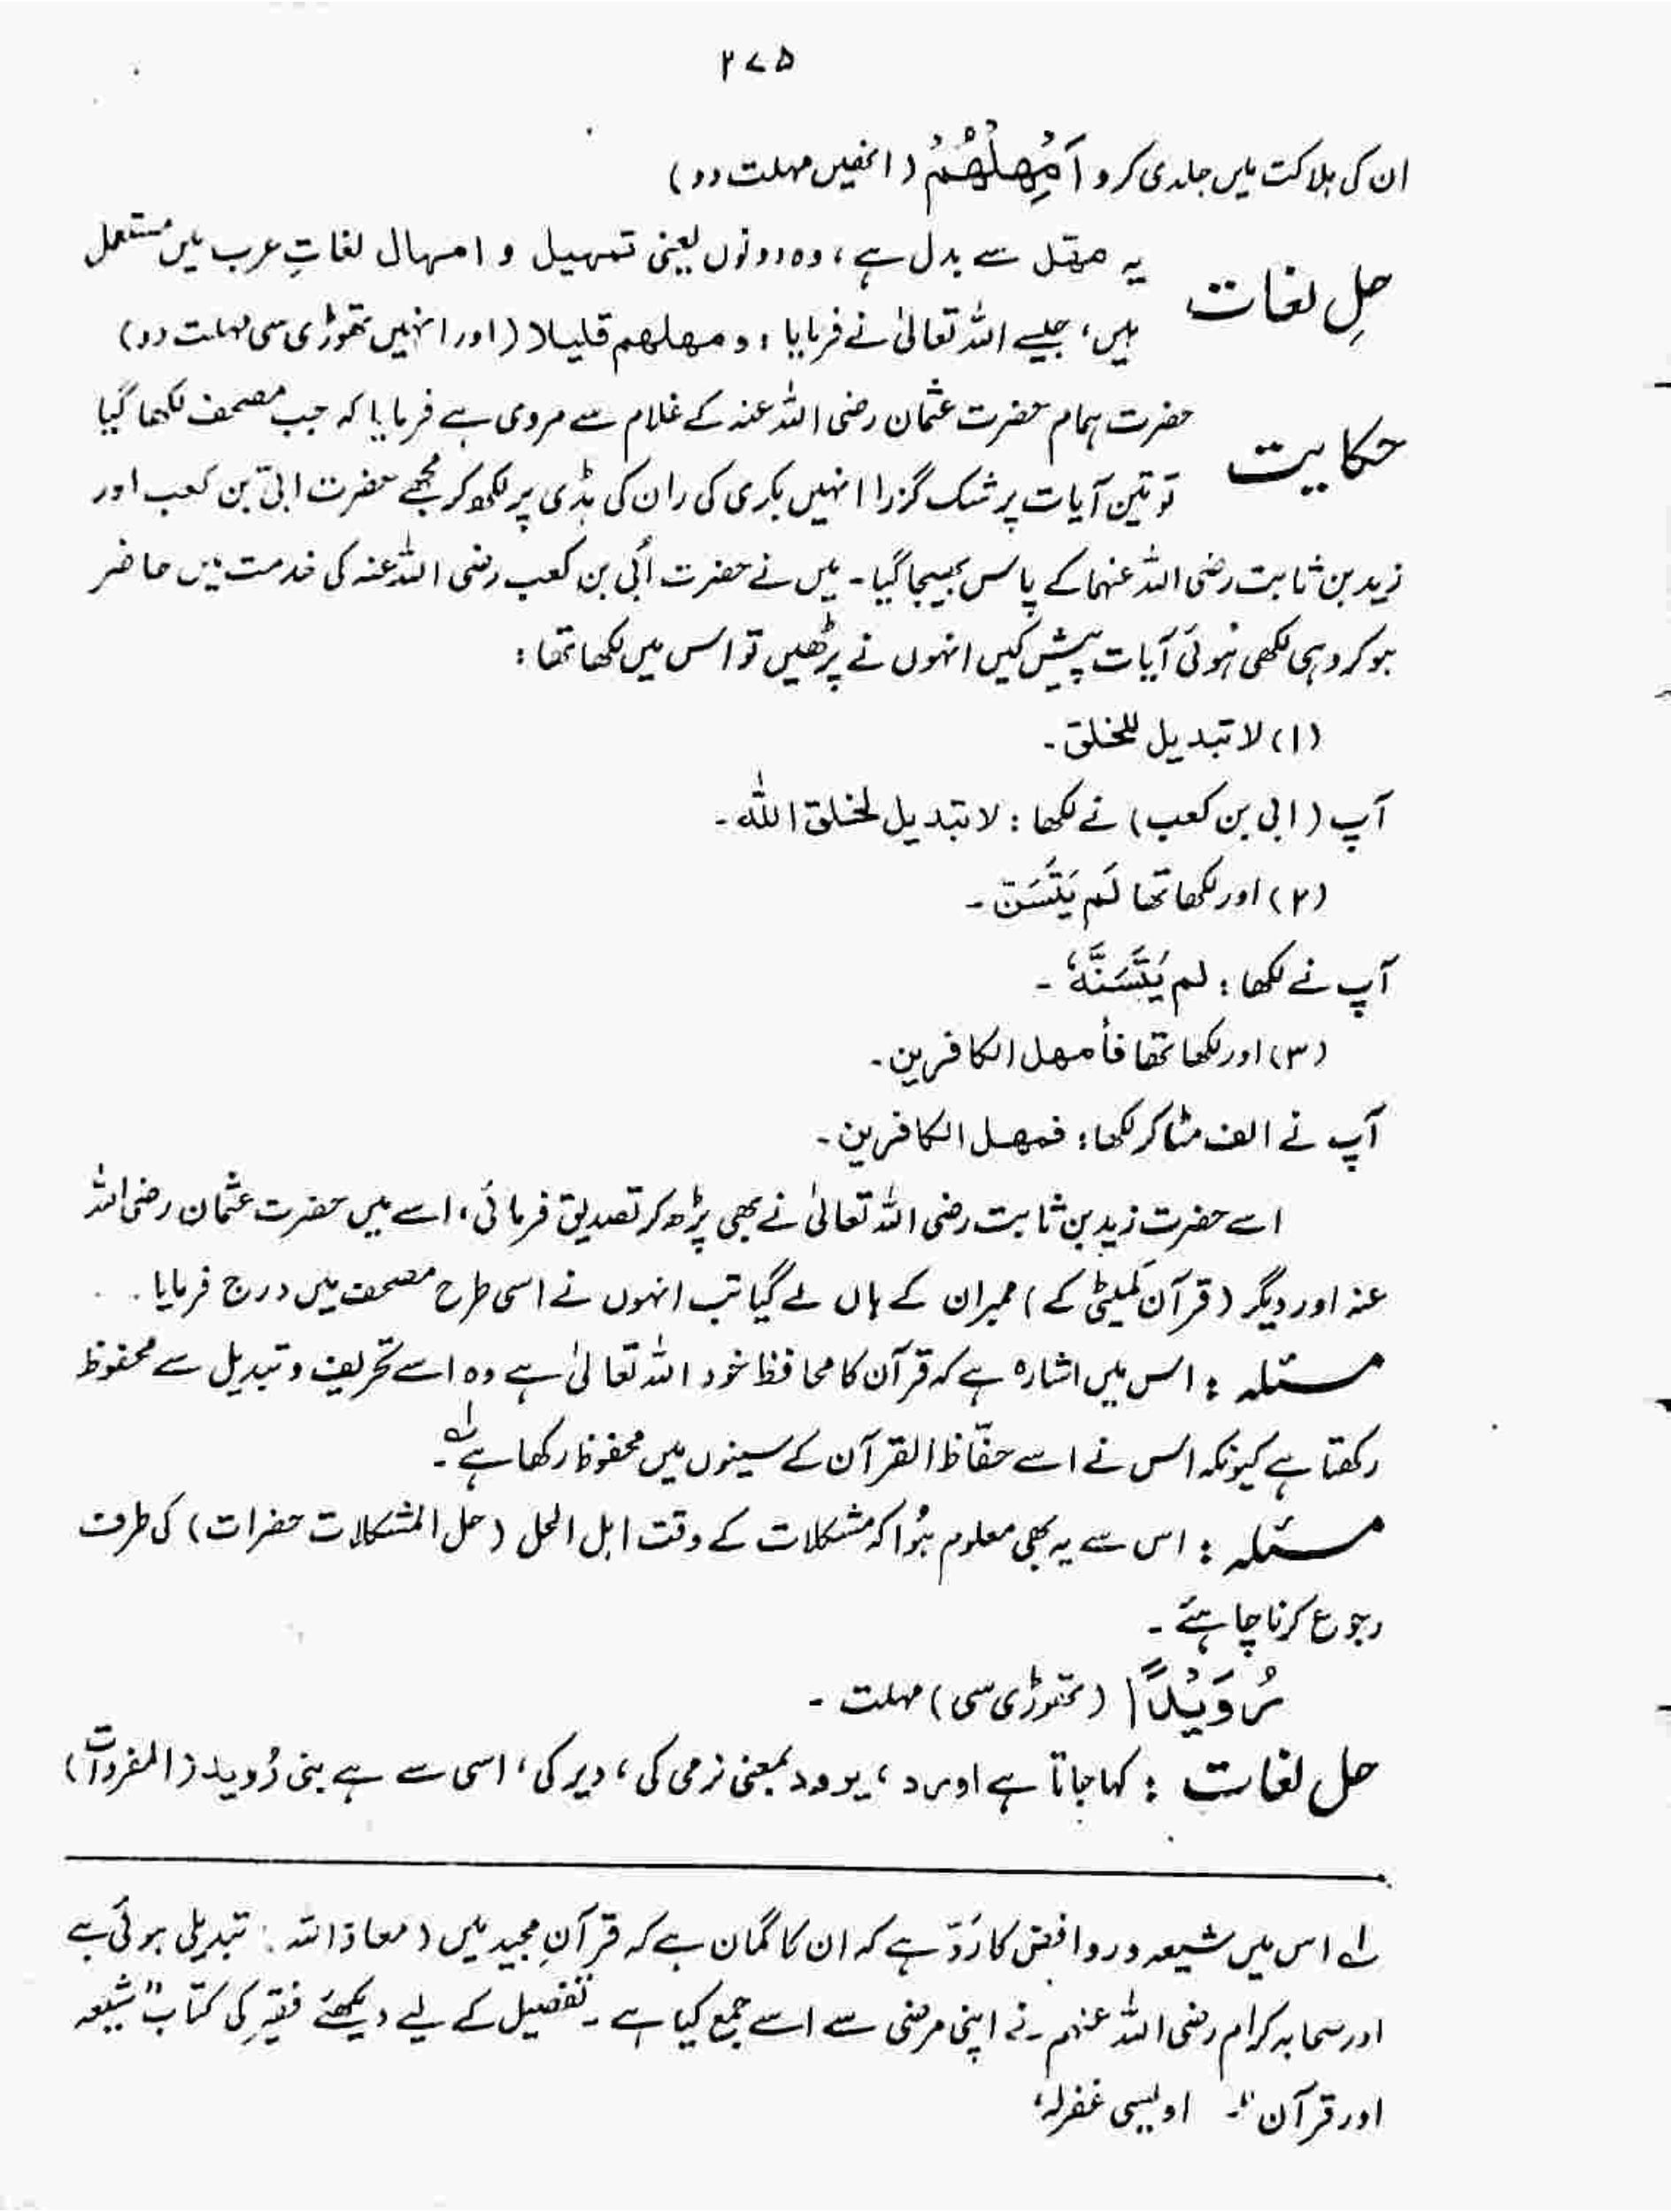 ۲۷۵
ان کی ہلاکت میں جلدی کرو اَمْہِلْھُمْ (انھیں مہلت دو)
حلِ لغات یہ مھّل سے بدل ہے، وہ دونوں یعنی تمہیل و امہال لغاتِ عرب میں مستعمل
ہیں، جیسے اللہ تعالیٰ نے فرمایا: و مھلھم قلیلا (اور انہیں تھوڑی سی مہلت دو)
حکایت حضرت ہمام حضرت عثمان رضی اللہ عنہ کے غلام سے مروی ہے فرمایا کہ جب مصحف لکھا گیا
تو تین آیات پر شک گزرا انہیں بکری کی ران کی ہڈی پر لکھ کر مجھے حضرت ابیّ بن کعب اور
زید بن ثابت رضی اللہ عنہما کے پاس بھیجا گیا۔ میں نے حضرت اُبی بن کعب رضی اللہ عنہ کی خدمت میں حاضر
ہو کر وہی لکھی ہُوئی آیات پیش کیں انہوں نے پڑھیں تو اس میں لکھا تھا:
(۱) لا تبدیل للخلق۔
آپ (ابی بن کعب) نے لکھا: لا تبدیل لخلق اللہ۔
(۲) اور لکھا تھا لَم یَتَسَنَ۔
آپ نے لکھا: لم یَتَسَنَّہٗ۔
(۳) اور لکھا تھا فأمھل الکافرین۔
آپ نے الف مٹا کر لکھا: فمھل الکافرین۔
اسے حضرت زید بن ثابت رضی اللہ تعالیٰ نے بھی پڑھ کر تصدیق فرمائی، اسے میں حضرت عثمان رضی اللہ
عنہ اور دیگر (قرآن کمیٹی کے) ممبران کے ہاں لے گیا تب انہوں نے اسی طرح مصحف میں درج فرمایا۔
مسئلہ: اس میں اشارہ ہے کہ قرآن کا محافظ خود اللہ تعالیٰ ہے وہ اسے تحریف و تبدیل سے محفوظ
رکھتا ہے کیونکہ اس نے اسے حفّاظ القرآن کے سینوں میں محفوظ رکھا ہے لہ۔
مسئلہ: اس سے یہ بھی معلوم ہُوا کہ مشکلات کے وقت اہل الحل (حل المشکلات حضرات) کی طرف
رجوع کرنا چاہئے۔
رُوَیْدًا (تھوڑی سی) مہلت۔
حل لغات: کہا جاتا ہے اورد، یرود بمعنی نرمی کی، دیر کی، اسی سے ہے بنی رُوید (المفردات)
لہ اس میں شیعہ و روافض کا رَدّ ہے کہ ان کا گمان ہے کہ قرآنِ مجید میں (معاذ اللہ) تبدیلی ہوئی ہے
اور صحابہ کرام رضی اللہ عنہم نے اپنی مرضی سے اسے جمع کیا ہے۔ تفصیل کے لیے دیکھئے فقیر کی کتاب "شیعہ
اور قرآن"۔ اویسی غفرلہٗ